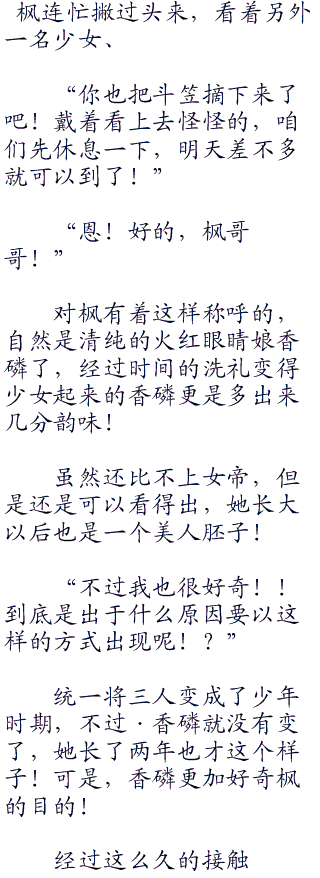 枫连忙撇过头来，看着另外
一名少女、
“你也把斗笠摘下来了
吧！戴着看上去怪怪的，咱
们先休息一下，明天差不多
就可以到了！”
“恩！好的，枫哥
哥！”
对枫有着这样称呼的，
自然是清纯的火红眼睛娘香
磷了，经过时间的洗礼变得
少女起来的香磷更是多出来
几分韵味！
虽然还比不上女帝，但
是还是可以看得出，她长大
以后也是一个美人胚子！
“不过我也很好奇！！
到底是出于什么原因要以这
样的方式出现呢！？”
统一将三人变成了少年
时期，不过·香磷就没有变
了，她长了两年也才这个样
子！可是，香磷更加好奇枫
的目的！
经过这么久的接触